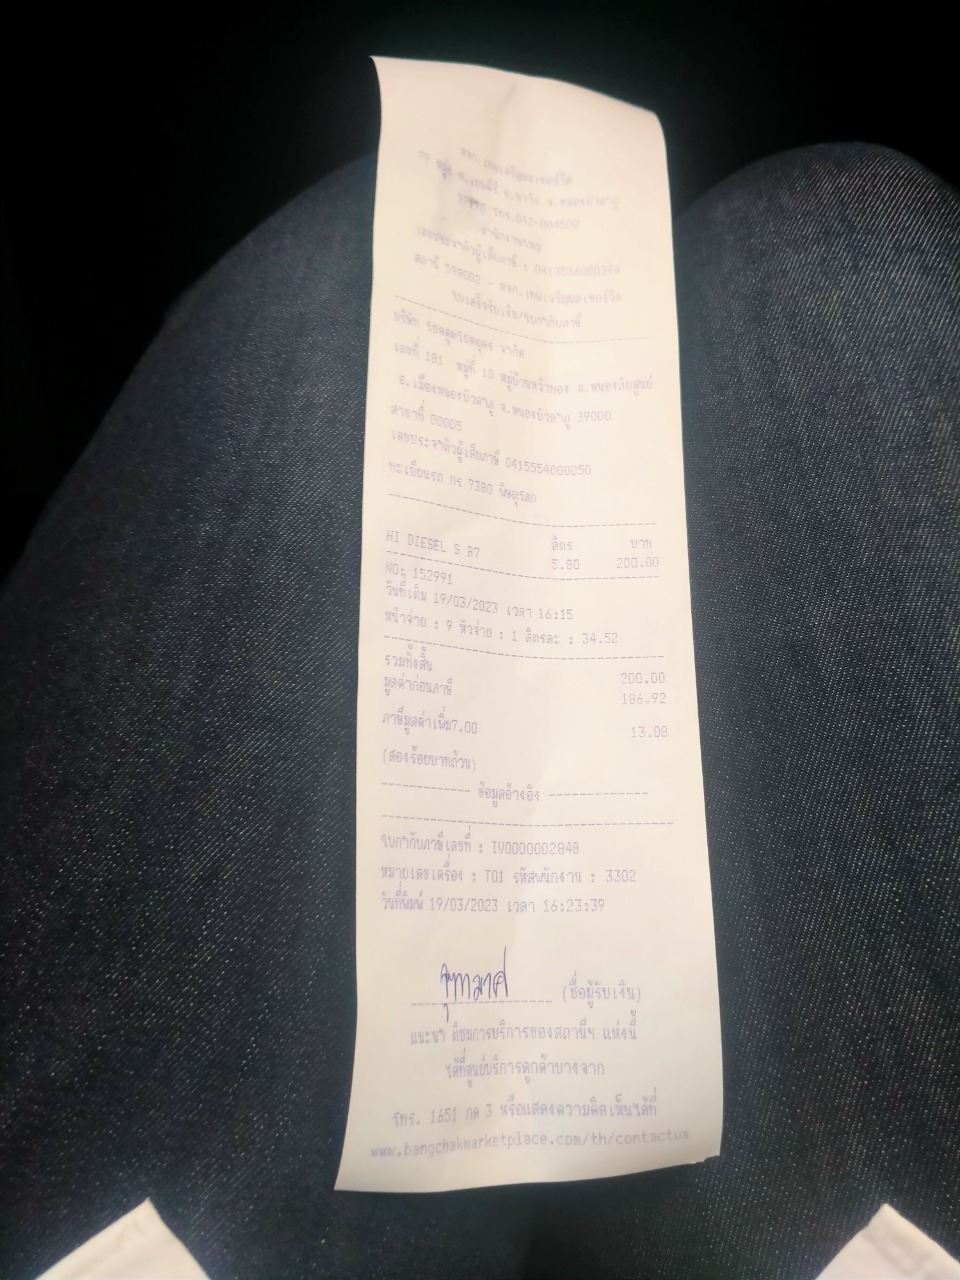 หจก.เทพเจริญผลเซอร์วิส
99 หมู่ ต.เทพคีรี อ.นาวัง จ.หนองบัวลำภู
โทร.042-004500
สำนักงานใหญ่
เลขประจำตัวผู้เสียภาษี : 0413556000394
สถานี 598002 - หจก.เทพเจริญผลเซอร์วิส
ใบเสร็จรับเงิน/ใบกำกับภาษี
บริษัท จำกัด
เลขที่ 181 หมู่ที่ 10 หมู่บ้านหว้าทอง ต.หนองภัยศูนย์
อ.เมืองหนองบัวลำภู จ.หนองบัวลำภู 39000
สาขาที่ 00005
เลขประจำตัวผู้เสียภาษี 0415554000050
ทะเบียนรถ กร 7380 พิษณุโลก
ลิตร บาท
HI DIESEL S B7 5.80 200.00
NO: 152991
วันที่เติม 19/03/2023 เวลา 16:15
หน้าจ่าย : 9 หัวจ่าย : 1 ลิตรละ : 34.52
รวมทั้งสิ้น 200.00
มูลค่าก่อนภาษี 186.92
ภาษีมูลค่าเพิ่ม7.00 13.08
(สองร้อยบาทถ้วน)
------------ ข้อมูลอ้างอิง ------------
ใบกำกับภาษีเลขที่ : IV0000002848
หมายเลขเครื่อง : T01 รหัสพนักงาน : 3302
วันที่พิมพ์ 19/03/2023 เวลา 16:23:39
จุฑามาศ (ชื่อผู้รับเงิน)
แนะนำ ติชมการบริการของสถานีฯ แห่งนี้
ได้ที่ศูนย์บริการลูกค้าบางจาก
โทร. 1651 กด 3 หรือแสดงความคิดเห็นได้ที่
www.bangchakmarketplace.com/th/contactus